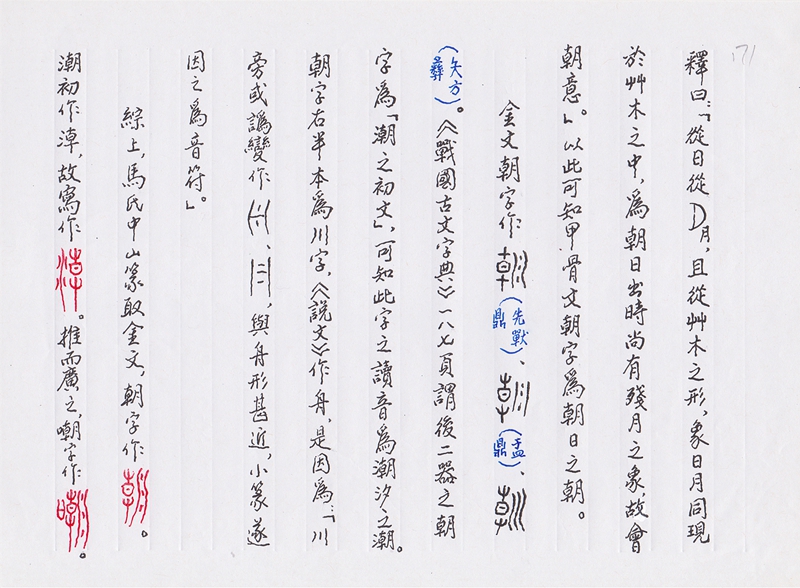 171
釋曰：「從日從月，且從艸木之形，象日月同現
於艸木之中，為朝日出時尚有殘月之象，故會
朝意。」以此可知甲骨文朝字為朝日之朝。
金文朝字作（先獸鼎）、（盂鼎）、
（矢方彝）。《戰國古文字典》一八七頁謂後二器之朝
字為「潮之初文」，可知此字之讀音為潮汐之潮。
朝字右半本為川字，《說文》作舟，是因為：「川
旁或譌變作、，與舟形甚近，小篆遂
因之為音符。」
綜上，馬氏中山篆取金文，朝字作。
潮初作淖，故寫作。推而廣之，嘲字作。